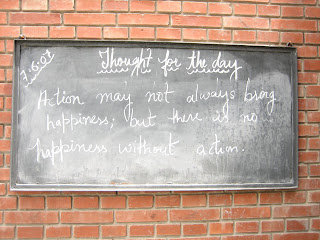 7.6.07
Thought for the day
Action may not always bring
happiness; but there is no
happiness without action.